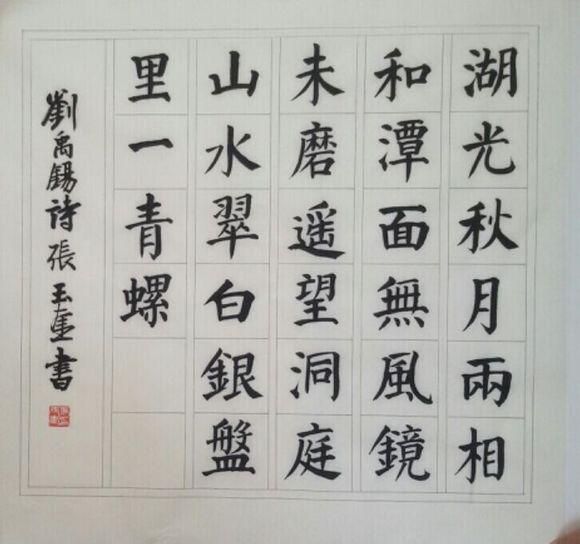 湖光秋月兩相
和潭面無風鏡
未磨遥望洞庭
山水翠白銀盤
里一青螺
劉禹錫詩張玉書